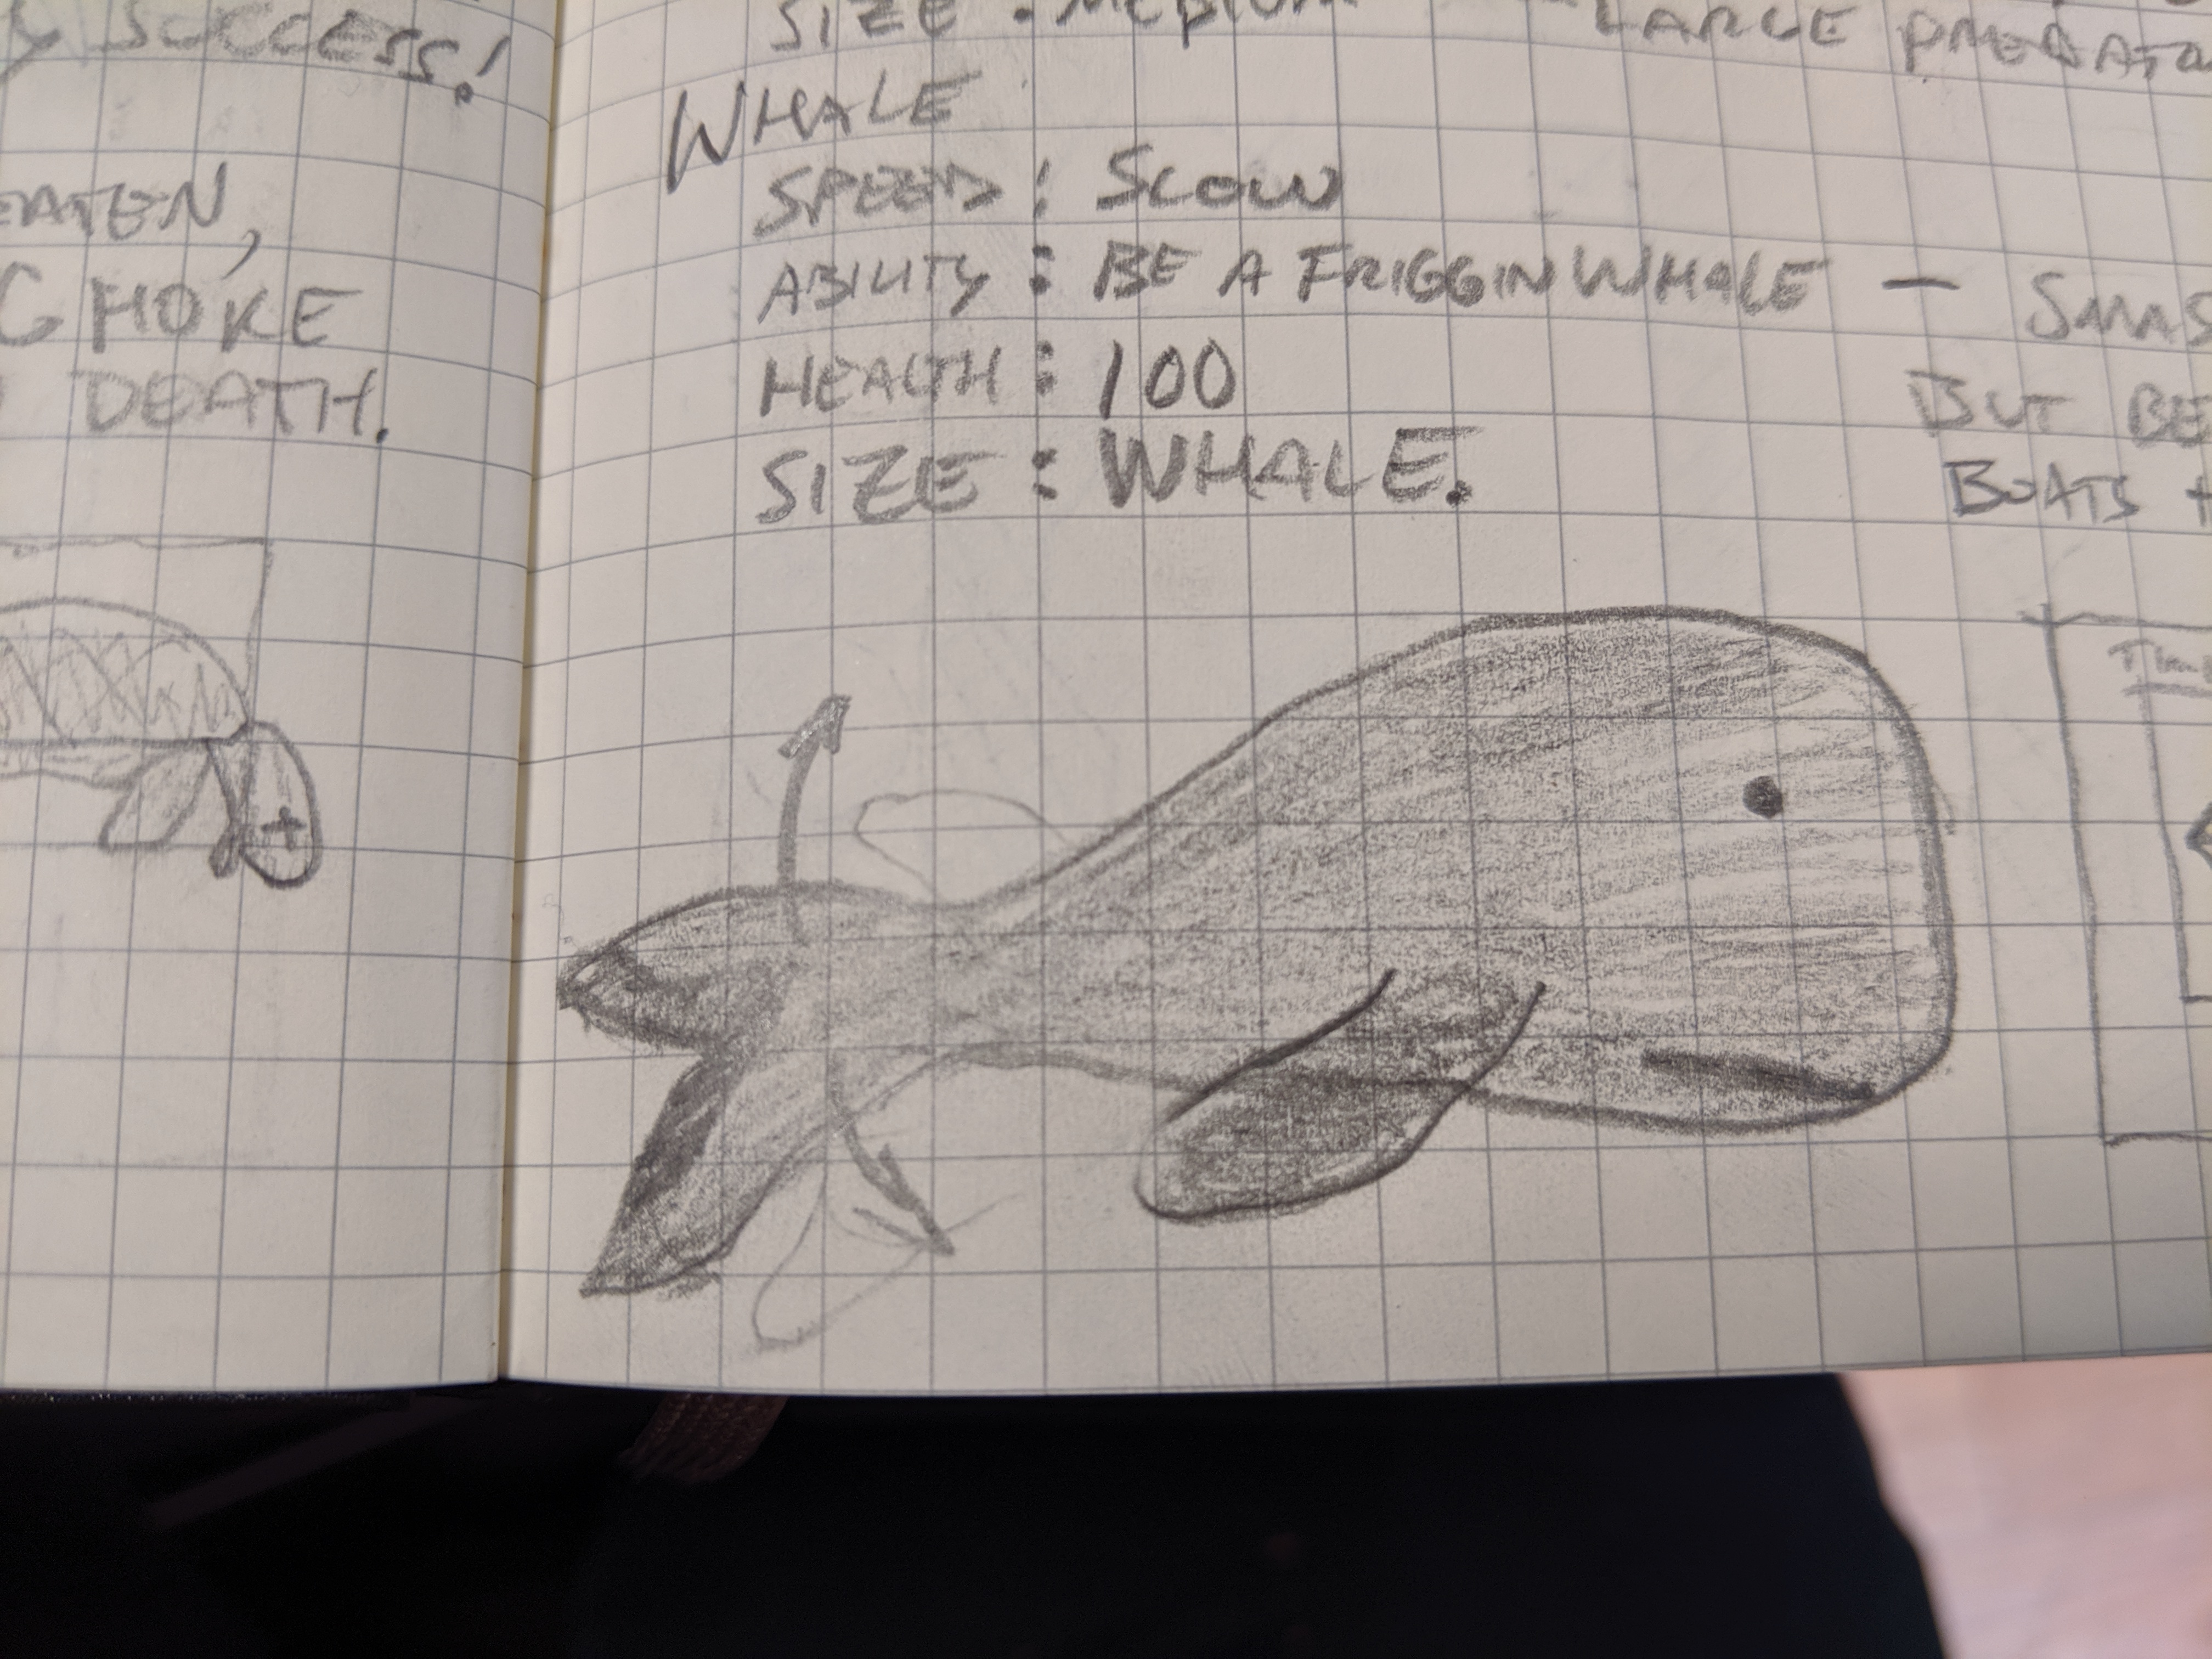 SUCCESS!
EATEN,
CHOKE
DEATH.
SIZE : MEDIUM
LARGE PREDATO
WHALE
SPEED : SLOW
ABILITY : BE A FRIGGIN WHALE —
BUT BE
HEALTH : 100
BOATS +
SIZE : WHALE.